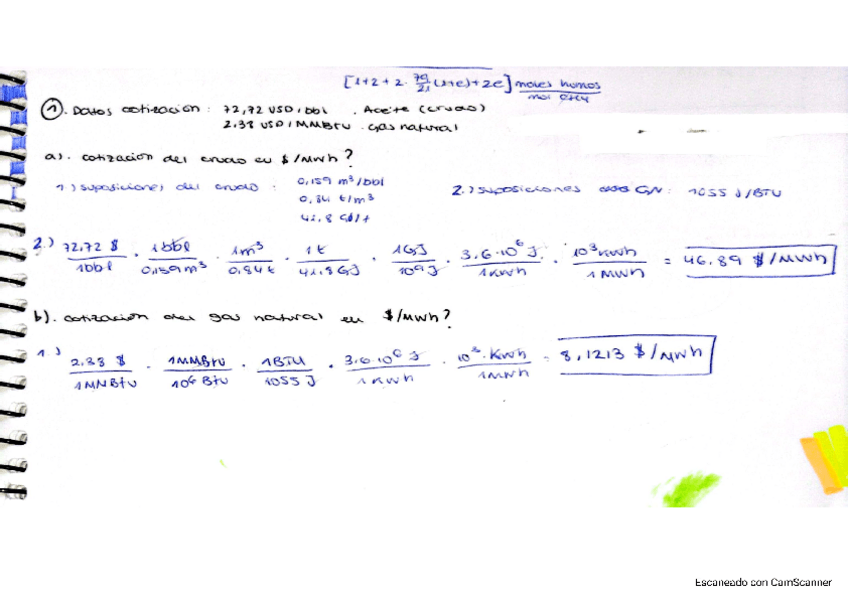 [1+2+2·79/21(1+e)+2e] moles humos / mol CH4
①. Datos cotización : 72,72 USD/bbl . Aceite (crudo)
2.38 USD/MMBTU . Gas natural
a). cotización del crudo en $/MWh?
1.) suposiciones del crudo : 0,159 m³/bbl
0,84 t/m³
41.8 GJ/t
2.) suposiciones GN: 1055 J/BTU
2.) 72,72 $ / 1bbl · 1bbl / 0,159 m³ · 1m³ / 0.84t · 1t / 41.8GJ · 1GJ / 10⁹J · 3.6·10⁶ J / 1kWh · 10³kWh / 1MWh = 46.89 $/MWh
b). cotización del gas natural en $/MWh?
1.) 2.38 $ / 1MMBtu · 1MMBtu / 10⁶ Btu · 1BTU / 1055 J · 3.6·10⁶ J / 1kWh · 10³·KWh / 1MWh = 8,1213 $/MWh
Escaneado con CamScanner